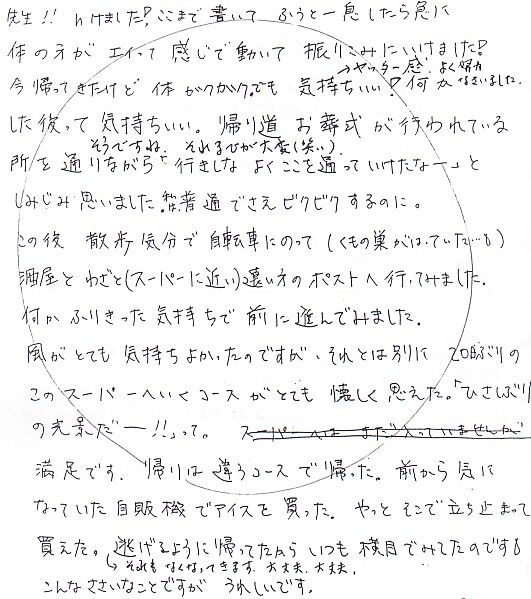 先生!! 行けました!ここまで書いて ふうと一息したら急に
体の方がエイって感じで動いて 振りこみにいけました!
→ヤッター感 よく努力なさいました.
今帰ってきたけど 体がクカクカ。でも 気持ちいい!何か
した後って気持ちいい。帰り道 お葬式が行われている
そうですね、それるひが大変(笑い).
所を通りながら「行きしな よくここを通っていけたなー」と
しみじみ思いました。私普通でさえビクビクするのに。
この後 散歩気分で自転車にのって(くもの巣がはっていた…)
酒屋とわざと(スーパーに近い)遠い方のポストへ行ってみました.
何かふりきった気持ちで前に進んでみました.
風がとても気持ちよかったのですが、それとは別に 20日ぶりの
このスーパーへいくコースがとても 懐しく思えた。「ひさしぶり
の光景だー!!」って。 スーパーへはまだ入っていませんが
満足です. 帰りは違うコースで帰った. 前から気に
なっていた自販機でアイスを買った. やっとそこで立ち止まって
買えた。逃げるように帰ってたからいつも横目でみてたのです
→それもなくなってきます.大丈夫、大丈夫.
こんなささいなことですが うれしいです.